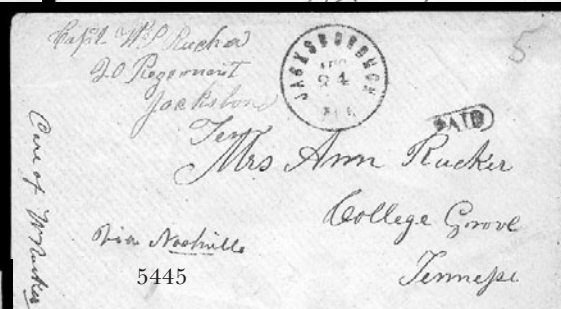 Capt W S Rucker
20 Regement
Jacksboro
Ten
JACKSBOROUGH
24
5
PAID
Mrs Ann Rucker
College Grove
Tennessee
Via Nashville
Care of W Rucker
5445